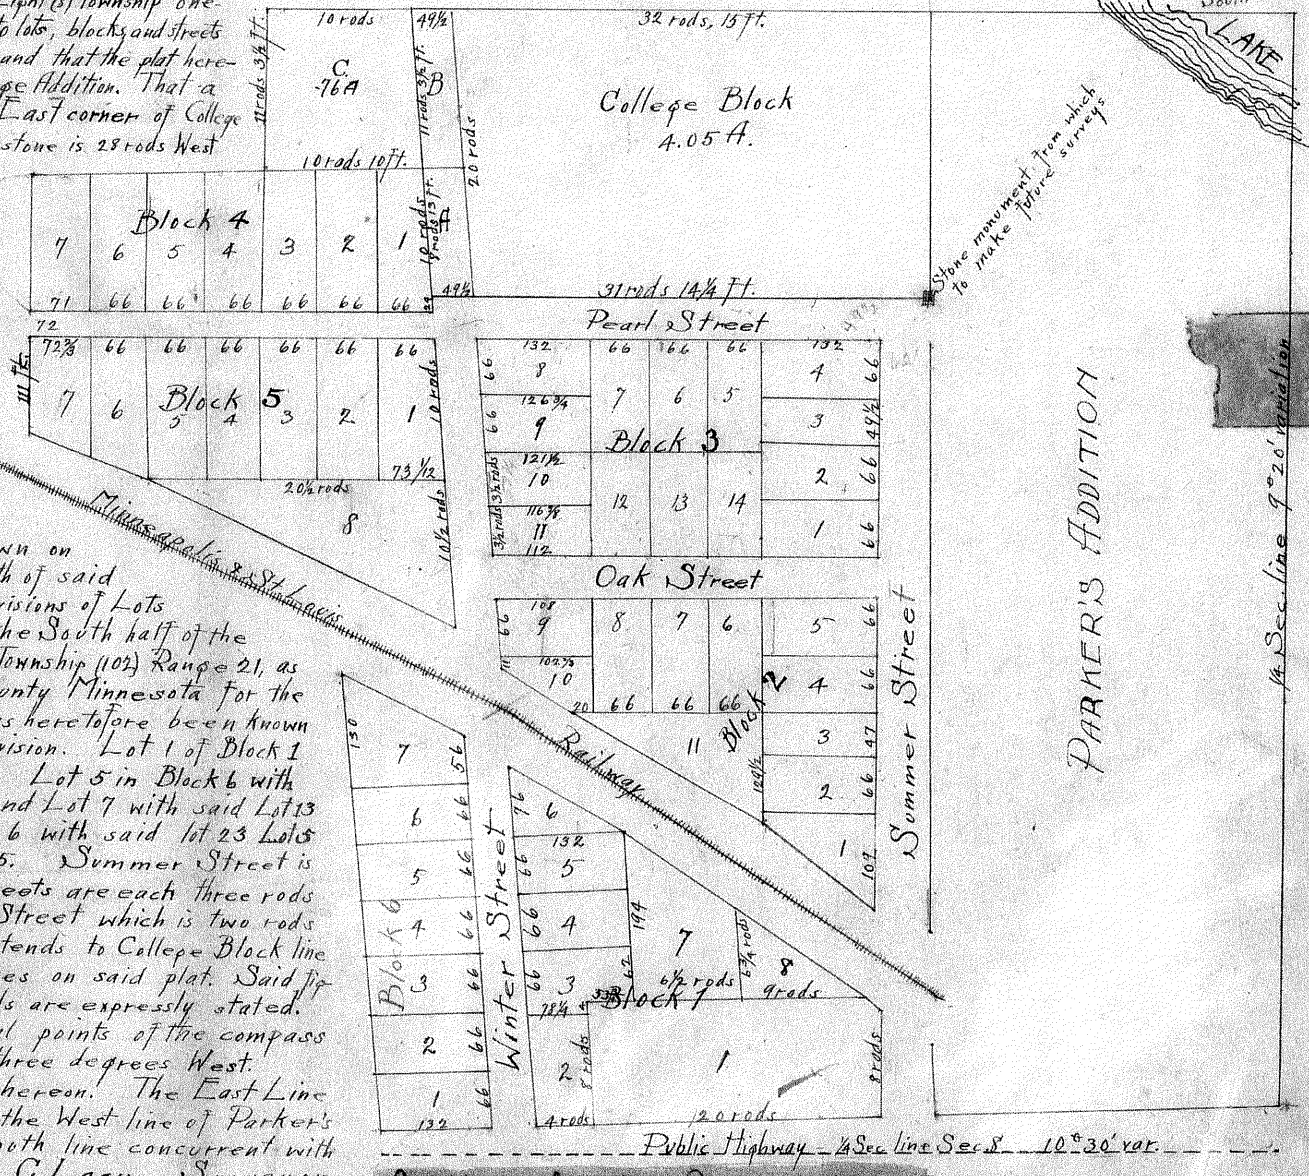 Township one-
lots, blocks and streets
and that the plat here-
Addition. That a
East corner of College
stone is 28 rods West
10 rods
49½
32 rods, 15 ft.
11 rods 3½ ft.
C.
.76 A
11 rods 3½ ft.
B
20 rods
College Block
4.05 A.
South
LAKE
Stone monument from which
to make future surveys
10 rods 10 ft.
Block 4
7 6 5 4 3 2 1
10 rods
9 rods 13 ft.
A
71 66 66 66 66 66 66
49½
31 rods 14¼ ft.
Pearl Street
72
72⅔ 66 66 66 66 66 66
111 ft.
Block 5
7 6 5 4 3 2 1
10 rods
73 1/12
20½ rods
8
10½ rods
132 66 66 66 132
66
8
7 6 5
4
66
126¾
66
9
3
49½
Block 3
121½
3½ rods
10
12 13 14
2
66
116⅜
3½ rods
11
1
66
112
Oak Street
108
66
9
8 7 6
5
66
102⅔
10
4
66
20 66 66 66
Block 2
11
3
47
129½
2
66
1
109
Summer Street
PARKER'S ADDITION
¼ Sec. line 9° 20' variation
Minneapolis & St. Louis
Railway
wn on
th of said
visions of Lots
he South half of the
Township (102) Range 21, as
unty Minnesota for the
s heretofore been known
vision. Lot 1 of Block 1
Lot 5 in Block 6 with
nd Lot 7 with said Lot 13
6 with said lot 23 Lots
5. Summer Street is
eets are each three rods
Street which is two rods
tends to College Block line
es on said plat. Said fig-
ds are expressly stated.
al points of the compass
three degrees West.
hereon. The East Line
the West line of Parker's
outh line concurrent with
130
7
56
6
66
5
66
4
66
Block 6
3
66
2
66
1
66
132
Winter Street
76
6
132
66
5
66
4
194
7
6¾ rods
8
66
3
62
6½ rods
9 rods
78¼
Block 1
2
8 rods
1
8 rods
4 rods
20 rods
Public Highway - ¼ Sec line Sec. 8 10° 30' var.